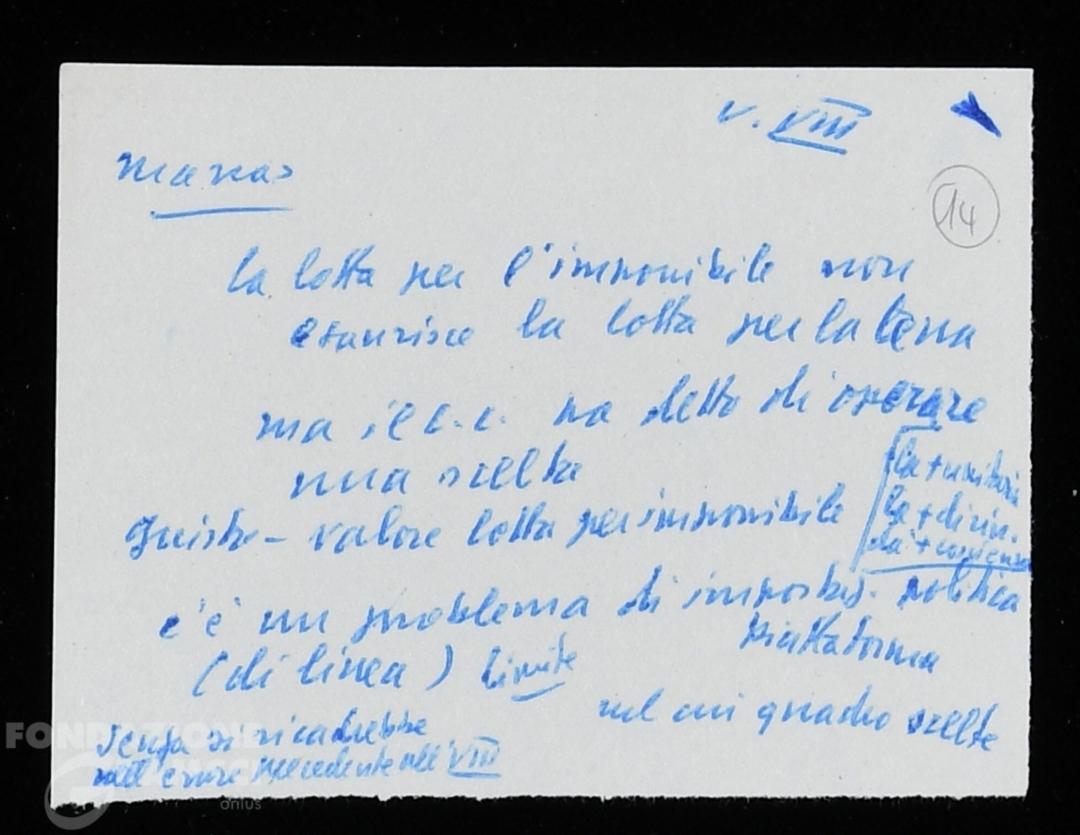 V. VIII
14
la lotta per l'imponibile non
esaurisce la lotta per la terra
ma il C.C. ha detto di operare
una scelta
giusto - valore lotta per imponibile
là + unitaria
là + disin.
dà + coscienza
c'è un problema di impostaz. politica
piattaforma
(di linea) limite
nel cui quadro scelte
senza si ricadrebbe
nell'errore precedente all'VIII
FONDAZIONE
onlus